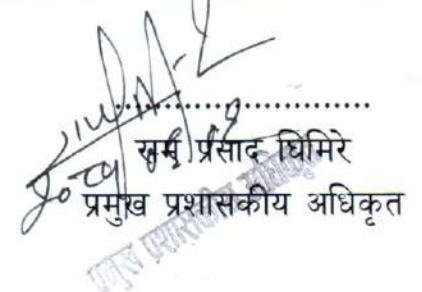 ..............................
प्रसाद घिमिरे
प्रमुख प्रशासकीय अधिकृत
प्रमुख प्रशासकीय अधिकृत